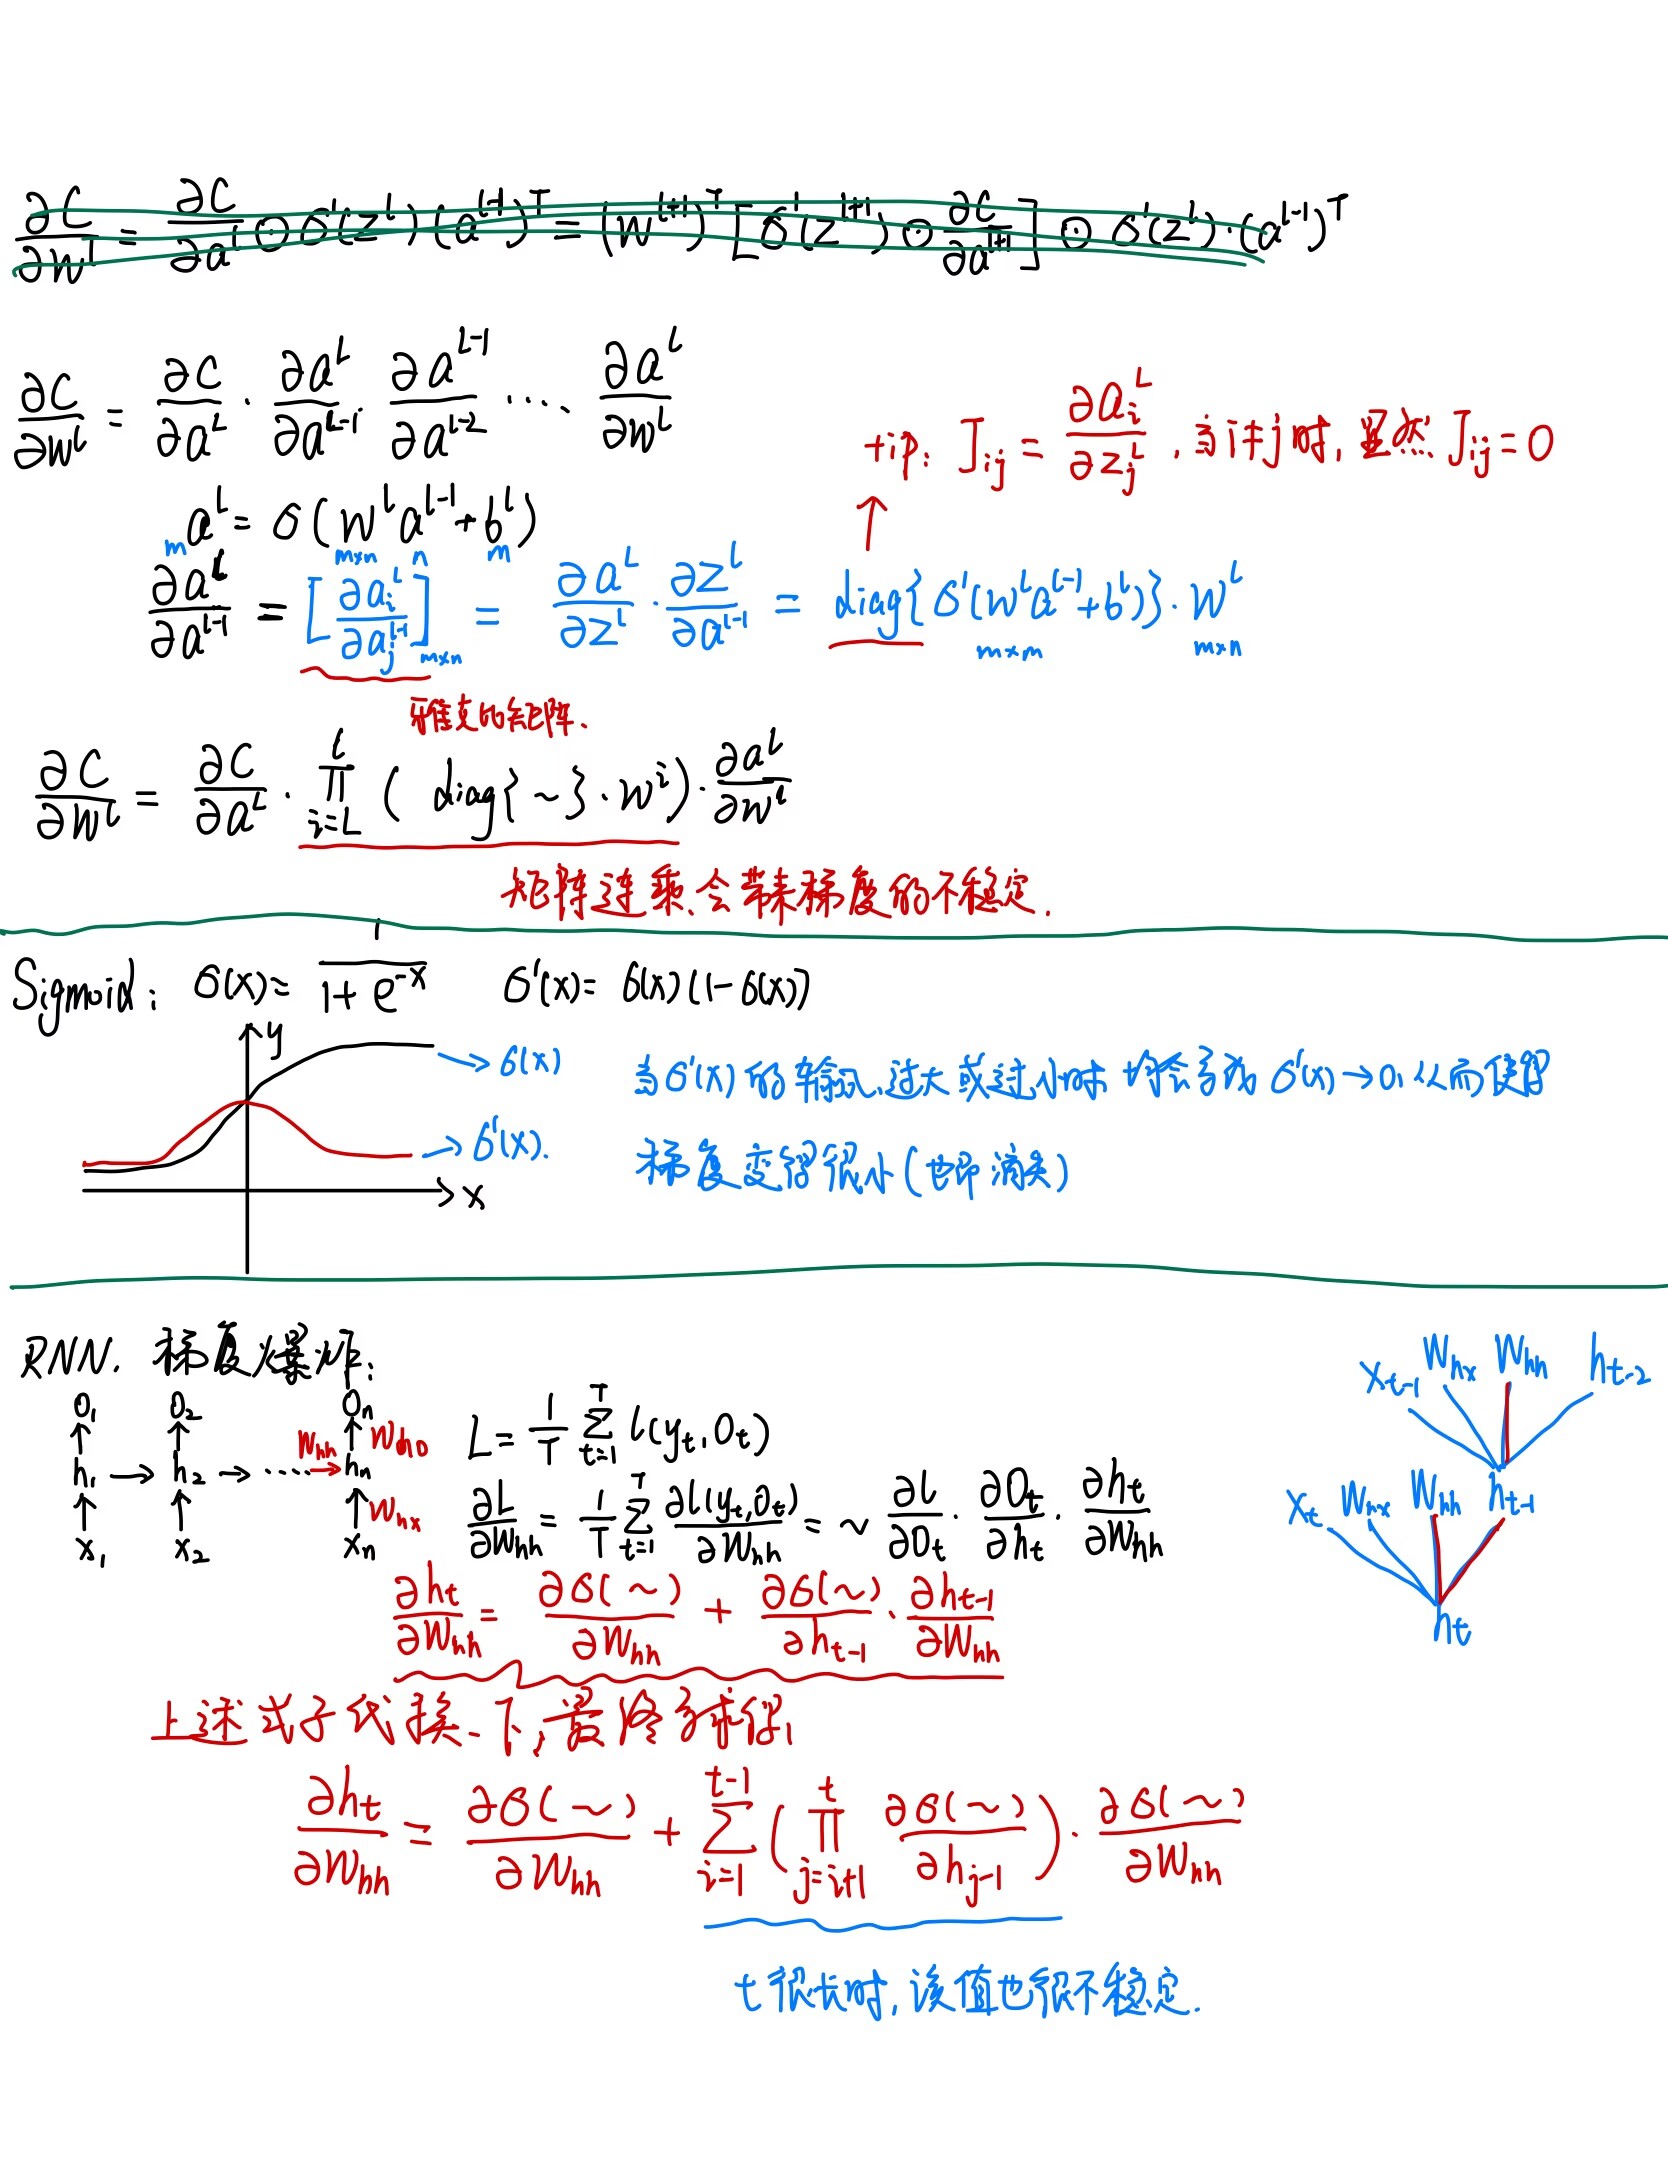 ∂C/∂w^l = ∂C/∂a^l ⊙ σ'(z^l) (a^{l-1})^T = (w^{l+1})^T [σ'(z^{l+1}) ⊙ ∂C/∂a^{l+1}] ⊙ σ'(z^l)·(a^{l-1})^T
∂C/∂w^l = ∂C/∂a^L · ∂a^L/∂a^{L-1} ∂a^{L-1}/∂a^{L-2} ···· ∂a^l/∂w^l
tip: J_ij = ∂a_i^L/∂z_j^L , 当i≠j时, 显然 J_ij = 0
a^L = σ(w^l a^{l-1} + b^l)
m m×n n m
∂a^l/∂a^{l-1} = [∂a_i^l/∂a_j^{l-1}]_{m×n} = ∂a^L/∂z^l · ∂z^l/∂a^{l-1} = diag{σ'(w^l a^{l-1} + b^l)} · w^l
m×m m×n
雅克比矩阵.
∂C/∂w^l = ∂C/∂a^L · ∏_{i=L}^{l} ( diag{~}·w^i) · ∂a^l/∂w^l
矩阵连乘、会带来梯度的不稳定.
Sigmoid: σ(x) = 1/(1+e^{-x}) σ'(x) = σ(x)(1-σ(x))
y
σ(x)
当σ'(x)的输入过大或过小时 均会导致 σ'(x)→0, 从而使得
σ'(x).
梯度变得很小(也即消失)
x
RNN. 梯度爆炸:
x_{t-1} W_hx W_hh h_{t-2}
O_1 O_2 O_n
L = 1/T ∑_{t=1}^{T} l(y_t, O_t)
W_hh W_ho
h_1 → h_2 → ····· → h_n
x_t W_hx W_hh h_{t-1}
W_hx
x_1 x_2 x_n
∂L/∂W_hh = 1/T ∑_{t=1}^{T} ∂l(y_t, O_t)/∂W_hh = ~ ∂l/∂O_t · ∂O_t/∂h_t · ∂h_t/∂W_hh
∂h_t/∂W_hh = ∂σ(~)/∂W_hh + ∂σ(~)/∂h_{t-1} · ∂h_{t-1}/∂W_hh
h_t
上述式子代换一下, 最终可求得,
∂h_t/∂W_hh = ∂σ(~)/∂W_hh + ∑_{i=1}^{t-1} ( ∏_{j=i+1}^{t} ∂σ(~)/∂h_{j-1} ) · ∂σ(~)/∂W_hh
t很长时, 该值也很不稳定.